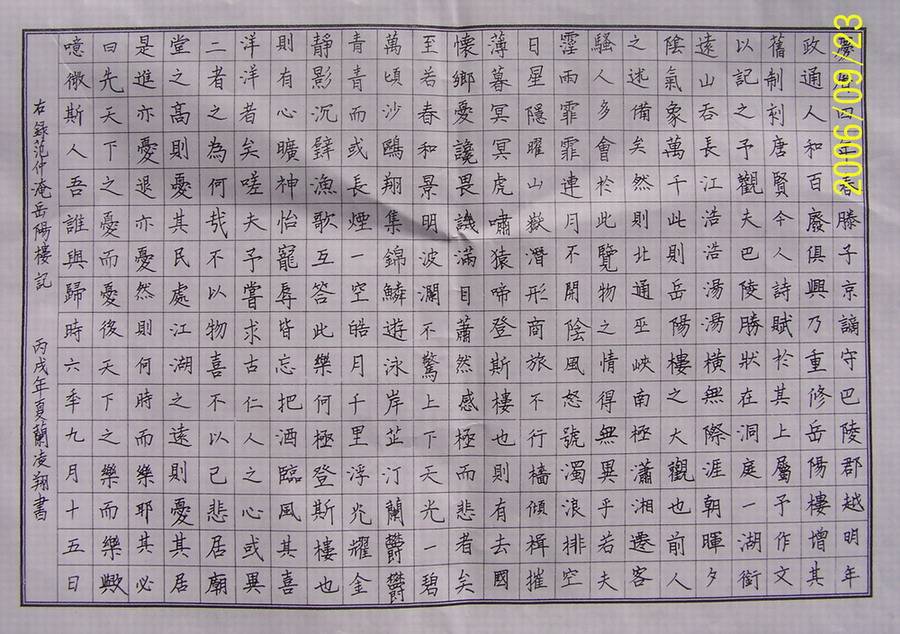 慶歷四年春滕子京謫守巴陵郡越明年
政通人和百廢俱興乃重修岳陽樓增其
舊制刻唐賢今人詩賦於其上屬予作文
以記之予觀夫巴陵勝狀在洞庭一湖銜
遠山吞長江浩浩湯湯橫無際涯朝暉夕
陰氣象萬千此則岳陽樓之大觀也前人
之述備矣然則北通巫峽南極瀟湘遷客
騷人多會於此覽物之情得無異乎若夫
霪雨霏霏連月不開陰風怒號濁浪排空
日星隱曜山嶽潛形商旅不行檣傾楫摧
薄暮冥冥虎嘯猿啼登斯樓也則有去國
懷鄉憂讒畏譏滿目蕭然感極而悲者矣
至若春和景明波瀾不驚上下天光一碧
萬頃沙鷗翔集錦鱗遊泳岸芷汀蘭鬱鬱
青青而或長煙一空皓月千里浮光耀金
靜影沉璧漁歌互答此樂何極登斯樓也
則有心曠神怡寵辱皆忘把酒臨風其喜
洋洋者矣嗟夫予嘗求古仁人之心或異
二者之為何哉不以物喜不以己悲居廟
堂之高則憂其民處江湖之遠則憂其居
是進亦憂退亦憂然則何時而樂耶其必
曰先天下之憂而憂後天下之樂而樂歟
噫微斯人吾誰與歸時六年九月十五日
右錄范仲淹岳陽樓記 丙戌年夏蘭凌翔書
2006/09/23